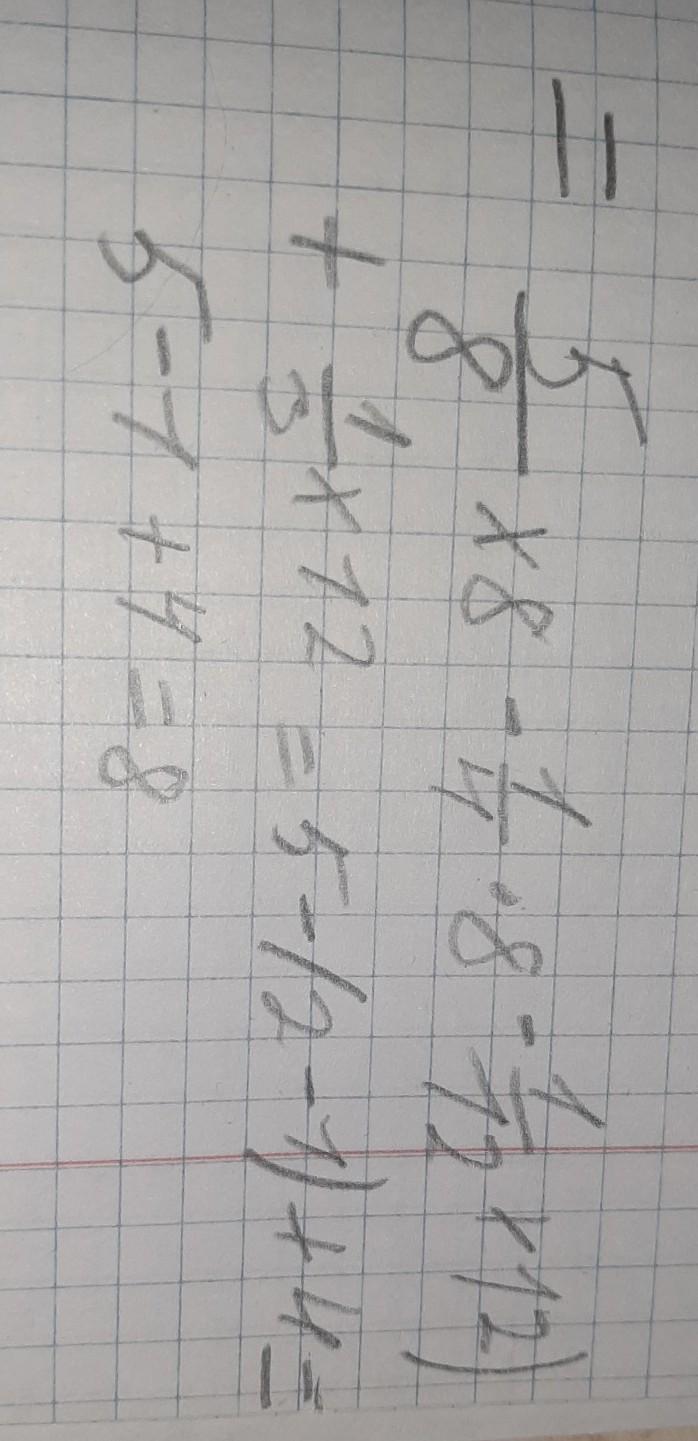 = 5/8 × 8 - 1/4 · 8 - 1/12 × 12)
+ 1/3 × 12 = 5 - (2 - 1) + 4 =
5 - 1 + 4 = 8